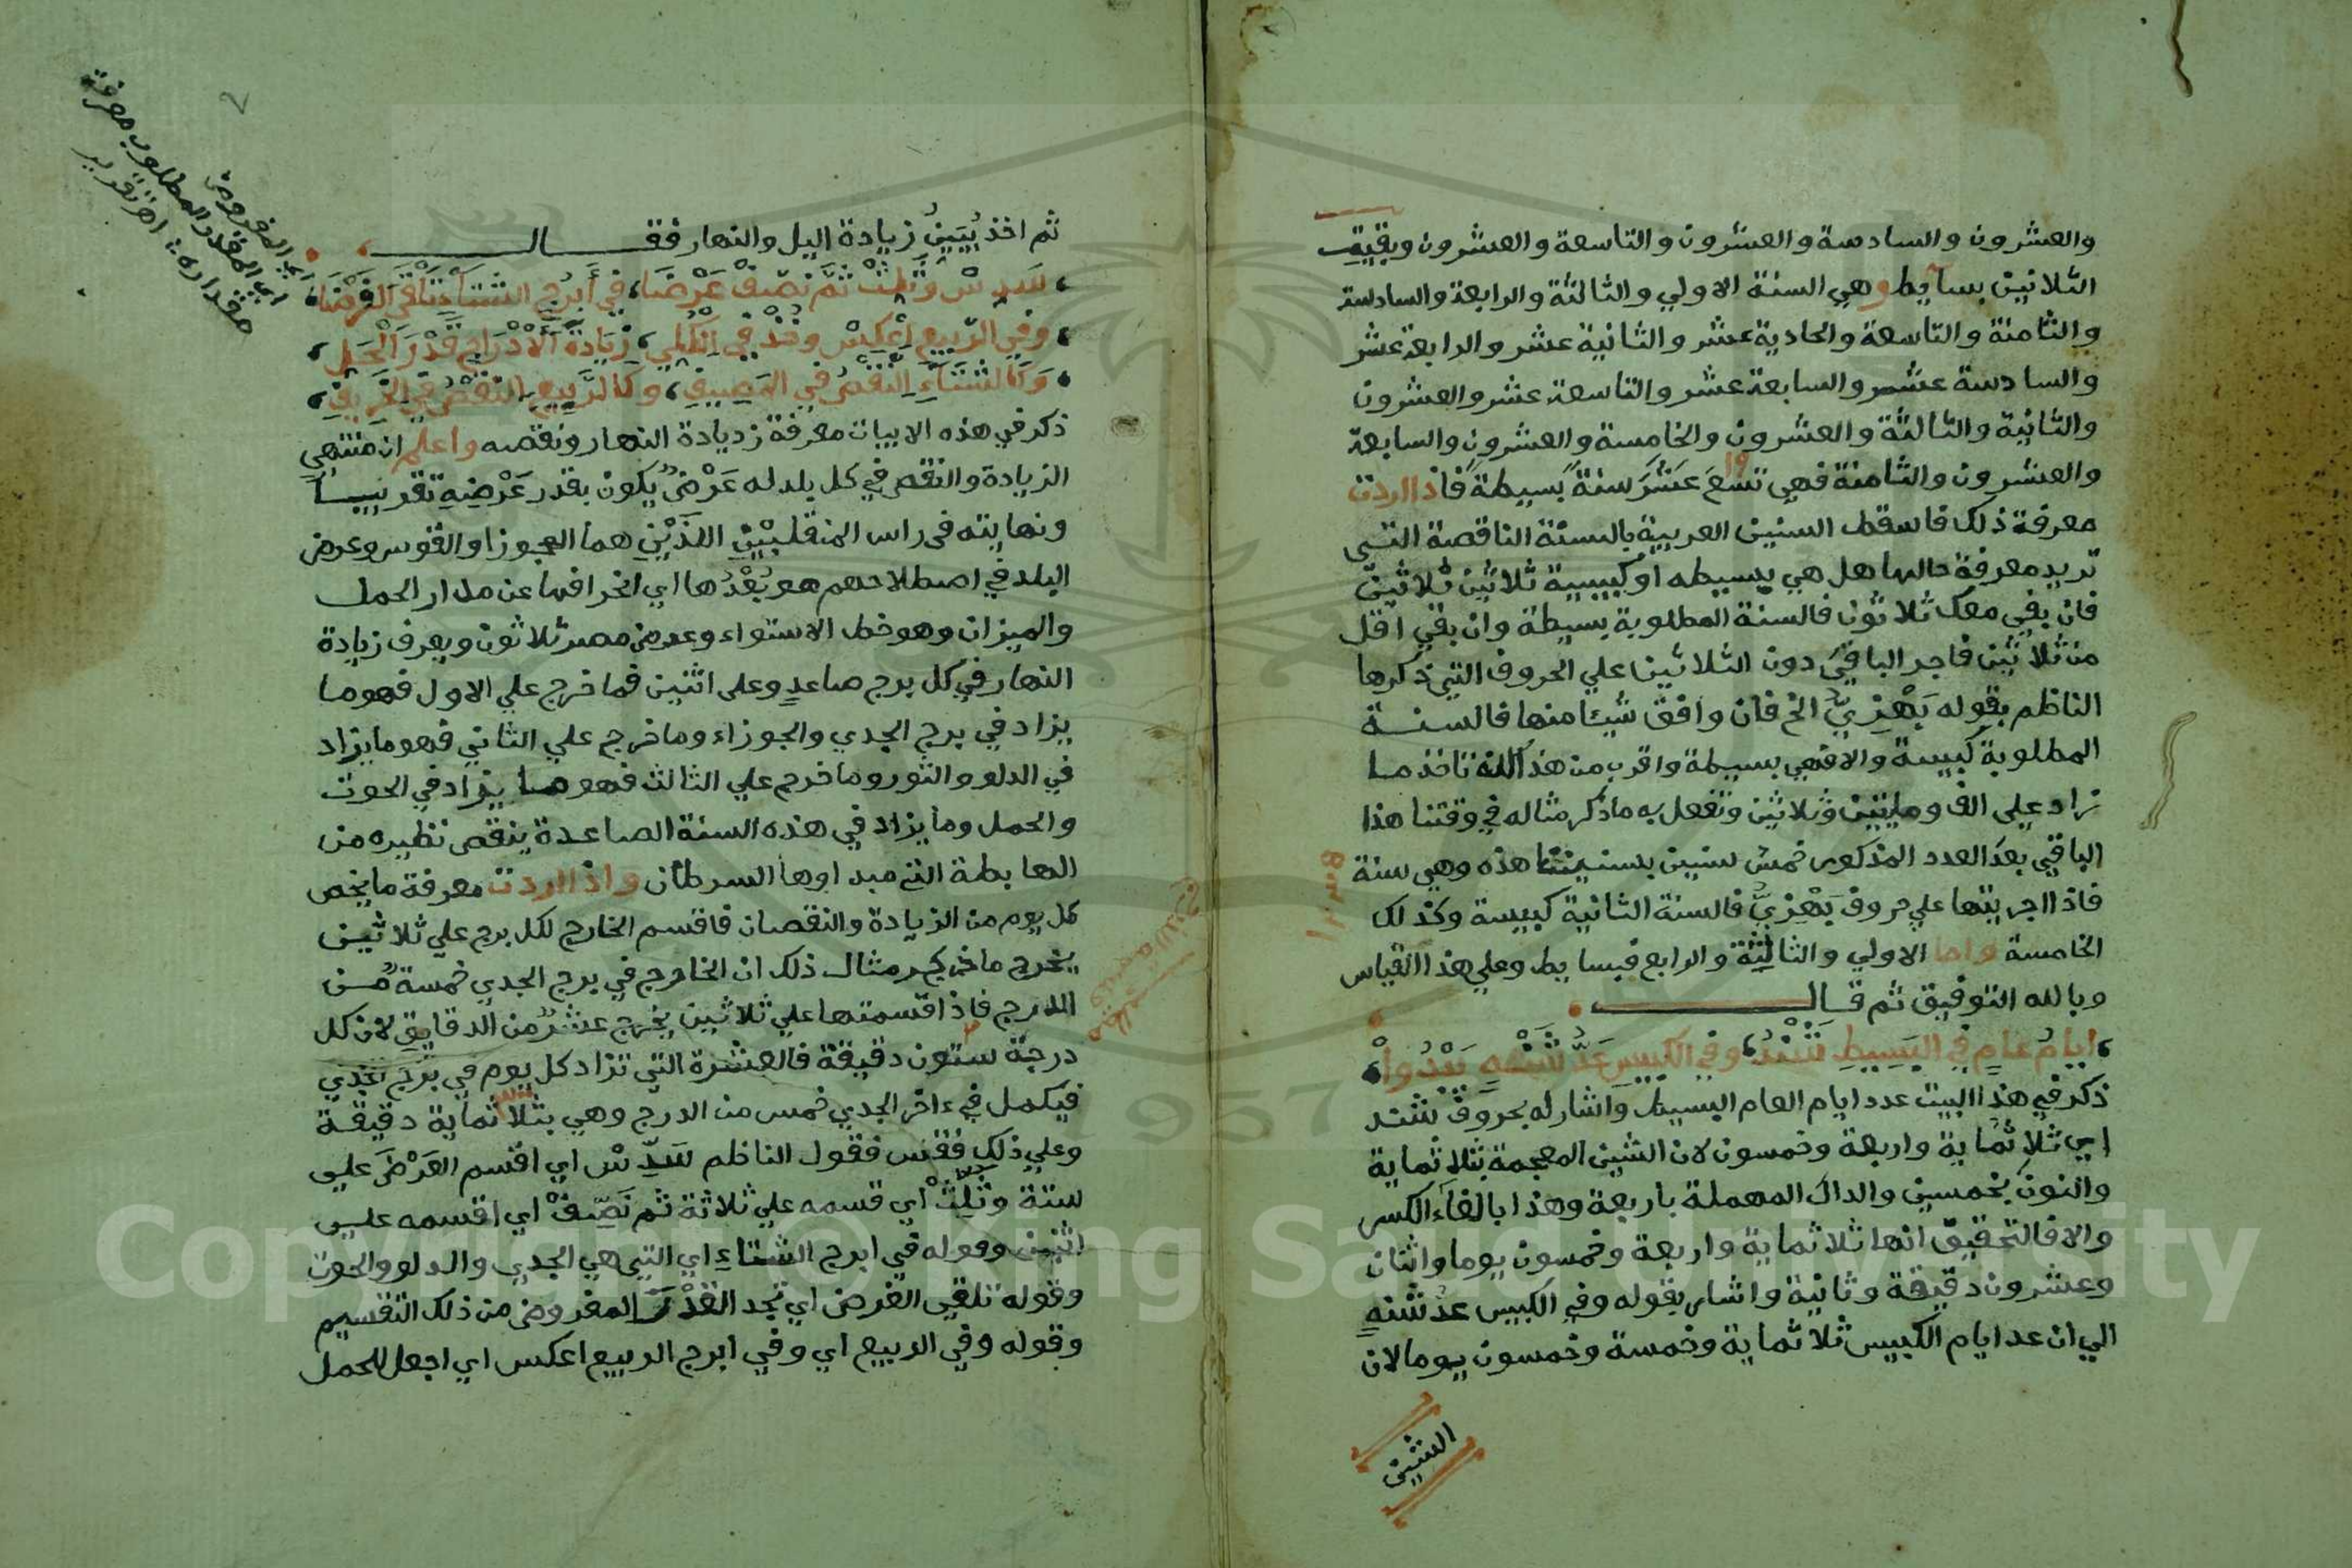 والعشرون والسادسة والعشرون والتاسعة والعشرون وبقيت
الثلاثين بسايط وهي السنة الاولي والثالثة والرابعة والسادسة
والثامنة والتاسعة والحادية عشر والثانية عشر والرابعة عشر
والسادسة عشر والسابعة عشر والتاسعة عشر والعشرون
والثانية والثالثة والعشرون والخامسة والعشرون والسابعة
والعشرون والثامنة فهي تسع عشر سنة بسيطة فاذا اردت
١٩
معرفة ذلك فاسقط السنين العربية بالسنة الناقصة التي
تريد معرفة حالها هل هي بسيطه او كبيسة ثلاثين ثلاثين
فان بقي معك ثلاثون فالسنة المطلوبة بسيطة وان بقي اقل
من ثلاثين فاجر الباقي دون الثلاثين علي الحروف التي ذكرها
الناظم بقوله بَهْزِيّ الخ فان وافق شيئا منها فالسنة
المطلوبة كبيسة والا فهي بسيطة واقرب من هذا انك تاخذ ما
زاد علي الف ومايتين وثلاثين وتفعل به ماذكر مثاله في وقتنا هذا
الباقي بعد العدد المذكور خمس سنين بسنيننا هذه وهي سنة
فاذا اجريتها علي حروف بَهْزِيّ فالسنة الثانية كبيسة وكذلك
الخامسة واما الاولي والثالثة والرابع فبسايط وعلي هذا القياس
وبالله التوفيق ثم قال
ايام عام في البسيط شند وفي الكبيس عدّ شنه يبدوا
ذكر في هذا البيت عدد ايام العام البسيط واشار له بحروف شند
اي ثلاثماية واربعة وخمسون لان الشين المعجمة بثلاثماية
والنون بخمسين والدال المهملة باربعة وهذا بالغاء الكسر
والا فالتحقيق انها ثلاثماية واربعة وخمسون يوما واثنان
وعشرون دقيقة وثانية واشار بقوله وفي الكبيس عد شنه
الي ان عد ايام الكبيس ثلاثماية وخمسة وخمسون يوما لان
الشين
ثم اخذ يبين زيادة اليل والنهار فقال
سدس وثلث ثم نصف عرضا في أبرج الشتاء تلقى الفرضا
وفي الربيع اعكس وخذ في اكمل زيادة الأدراج قدر الحمل
وكالشتاء النقص في المصيف وكالربيع النقص في الخريف
ذكر في هذه الابيات معرفة زيادة النهار ونقصه واعلم ان منتهي
الزيادة والنقص في كل بلد له عَرْض يكون بقدر عَرْضِه تقريبا
ونهايته في راس المنقلبين اللذين هما الجوزا والقوس وعرض
البلد في اصطلاحهم هو بعدها اي انحرافها عن مدار الحمل
والميزان وهو خط الاستواء وعرض مصر ثلاثون ويعرف زيادة
النهار في كل برج صاعد وعلى اثنين فما خرج علي الاول فهو ما
يزاد في برج الجدي والجوزاء وما خرج علي الثاني فهو ما يزاد
في الدلو والثور وما خرج علي الثالث فهو ما يزاد في الحوت
والحمل وما يزاد في هذه الستة الصاعدة ينقص نظيره من
الهابطة التي مبداوها السرطان واذا اردت معرفة مايخص
كل يوم من الزيادة والنقصان فاقسم الخارج لكل برج علي ثلاثين
يخرج ماذكر مثال ذلك ان الخارج في برج الجدي خمسة من
الدرج فاذا قسمتها علي ثلاثين يخرج عشر من الدقايق لان كل
درجة ستون دقيقة فالعشرة التي تزاد كل يوم في برج الجدي
فيكمل في ءاخر الجدي خمس من الدرج وهي بثلاثماية دقيقة
وعلي ذلك فقس فقول الناظم سَدِّسْ اي اقسم العَرْضَ علي
ستة وثَلِّثْ اي قسمه علي ثلاثة ثم نَصِّفْ اي اقسمه علي
اثنين وقوله في ابرج الشتاءِ اي التي هي الجدي والدلو والحوت
وقوله تلقي الفرض اي تجد القدر المفروض من ذلك التقسيم
وقوله وفي الربيع اي وفي ابرج الربيع اعكس اي اجعل للحمل
اي المفروض
اي المقدر والمطلوب معرفة
مقداره اهـ تقرير
Copyright © King Saud University
1957